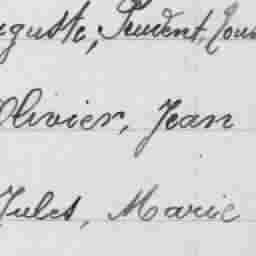 guste, Prudent, Lou
Olivier, Jean
Jules, Marie